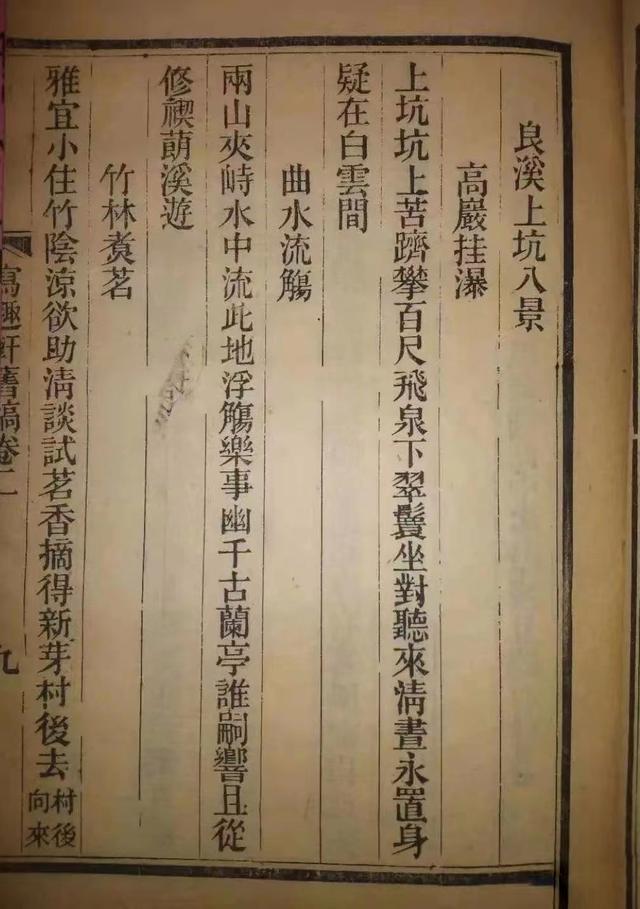 良溪上坑八景
高巖挂瀑
上坑坑上苦躋攀百尺飛泉下翠鬟坐對聽來清晝永置身
疑在白雲間
曲水流觴
兩山夾峙水中流此地浮觴樂事幽千古蘭亭誰嗣響且從
修禊萌溪遊
竹林煑茗
雅宜小住竹陰涼欲助淸談試茗香摘得新芽村後去村後
向來
寫趣軒舊稿卷二
九